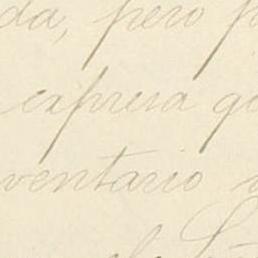 da, pero p
expresa q
ventario